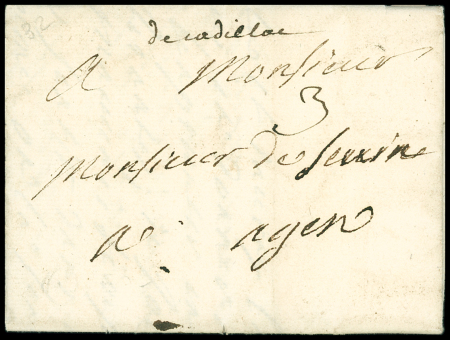 32
de cadillac
A Monsieur
3
Monsieur de
a agen